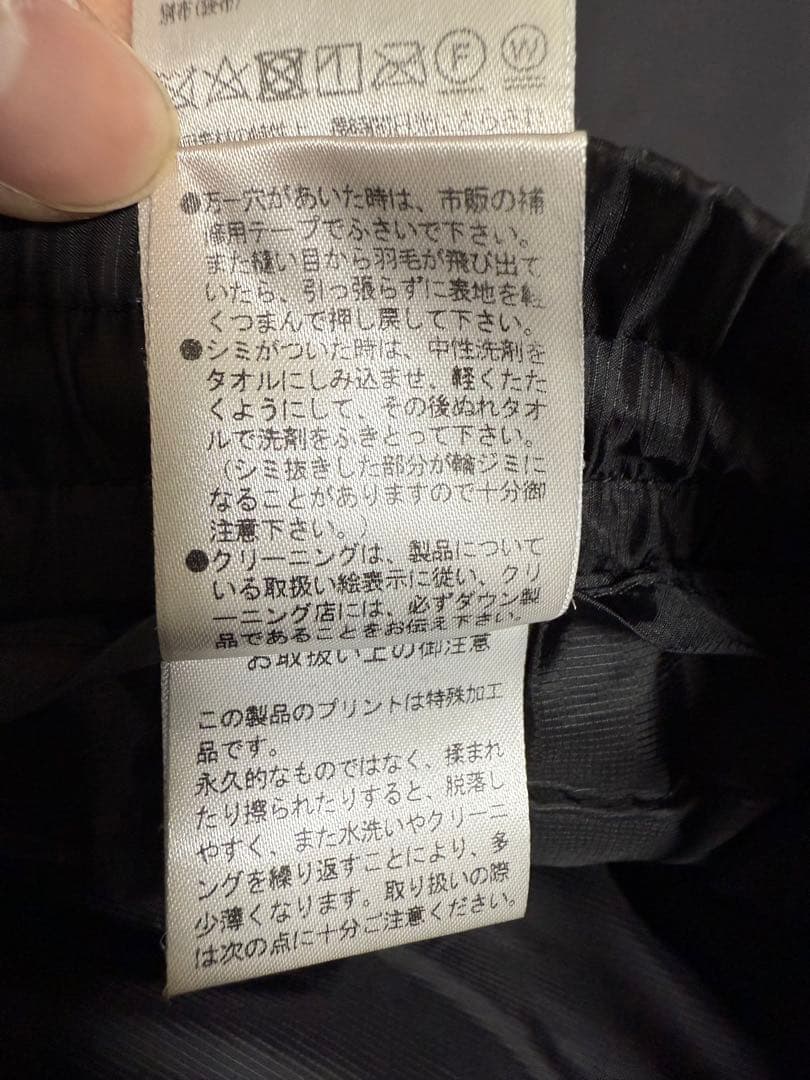 別布(袋布)
F W
●万一穴があいた時は、市販の補
修用テープでふさいで下さい。
また縫い目から羽毛が飛び出て
いたら、引っ張らずに表地を軽
くつまんで押し戻して下さい。
●シミがついた時は、中性洗剤を
タオルにしみ込ませ、軽くたた
くようにして、その後ぬれタオ
ルで洗剤をふきとって下さい。
(シミ抜きした部分が輪ジミに
なることがありますので十分御
注意下さい。)
●クリーニングは、製品について
いる取扱い絵表示に従い、クリ
ーニング店には、必ずダウン製
品であることをお伝え下さい。
お取扱い上の御注意
この製品のプリントは特殊加工
品です。
永久的なものではなく、揉まれ
たり擦られたりすると、脱落し
やすく、また水洗いやクリーニ
ングを繰り返すことにより、多
少薄くなります。取り扱いの際
は次の点に十分ご注意ください。